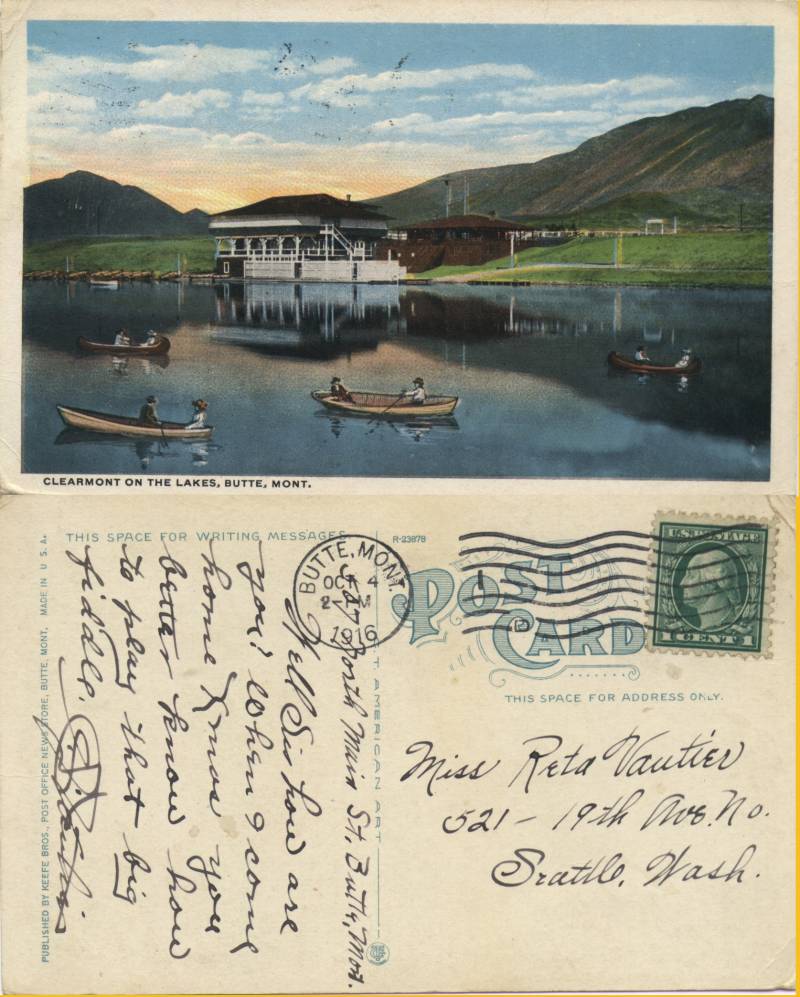 CLEARMONT ON THE LAKES, BUTTE, MONT.
THIS SPACE FOR WRITING MESSAGES
R-23878
BUTTE, MONT.
OCT 4
1916
POST CARD
U.S. POSTAGE
1 CENT 1
THIS SPACE FOR ADDRESS ONLY.
Miss Reta Vautier
521 - 19th Ave. No.
Seattle, Wash.
North Main St. Butte, Mon.
Well Sis how are
you? When I come
home Xmas you
better know how
to play that big
fiddle.
AMERICAN ART
PUBLISHED BY KEEFE BROS., POST OFFICE NEWS STORE, BUTTE, MONT. MADE IN U S A.